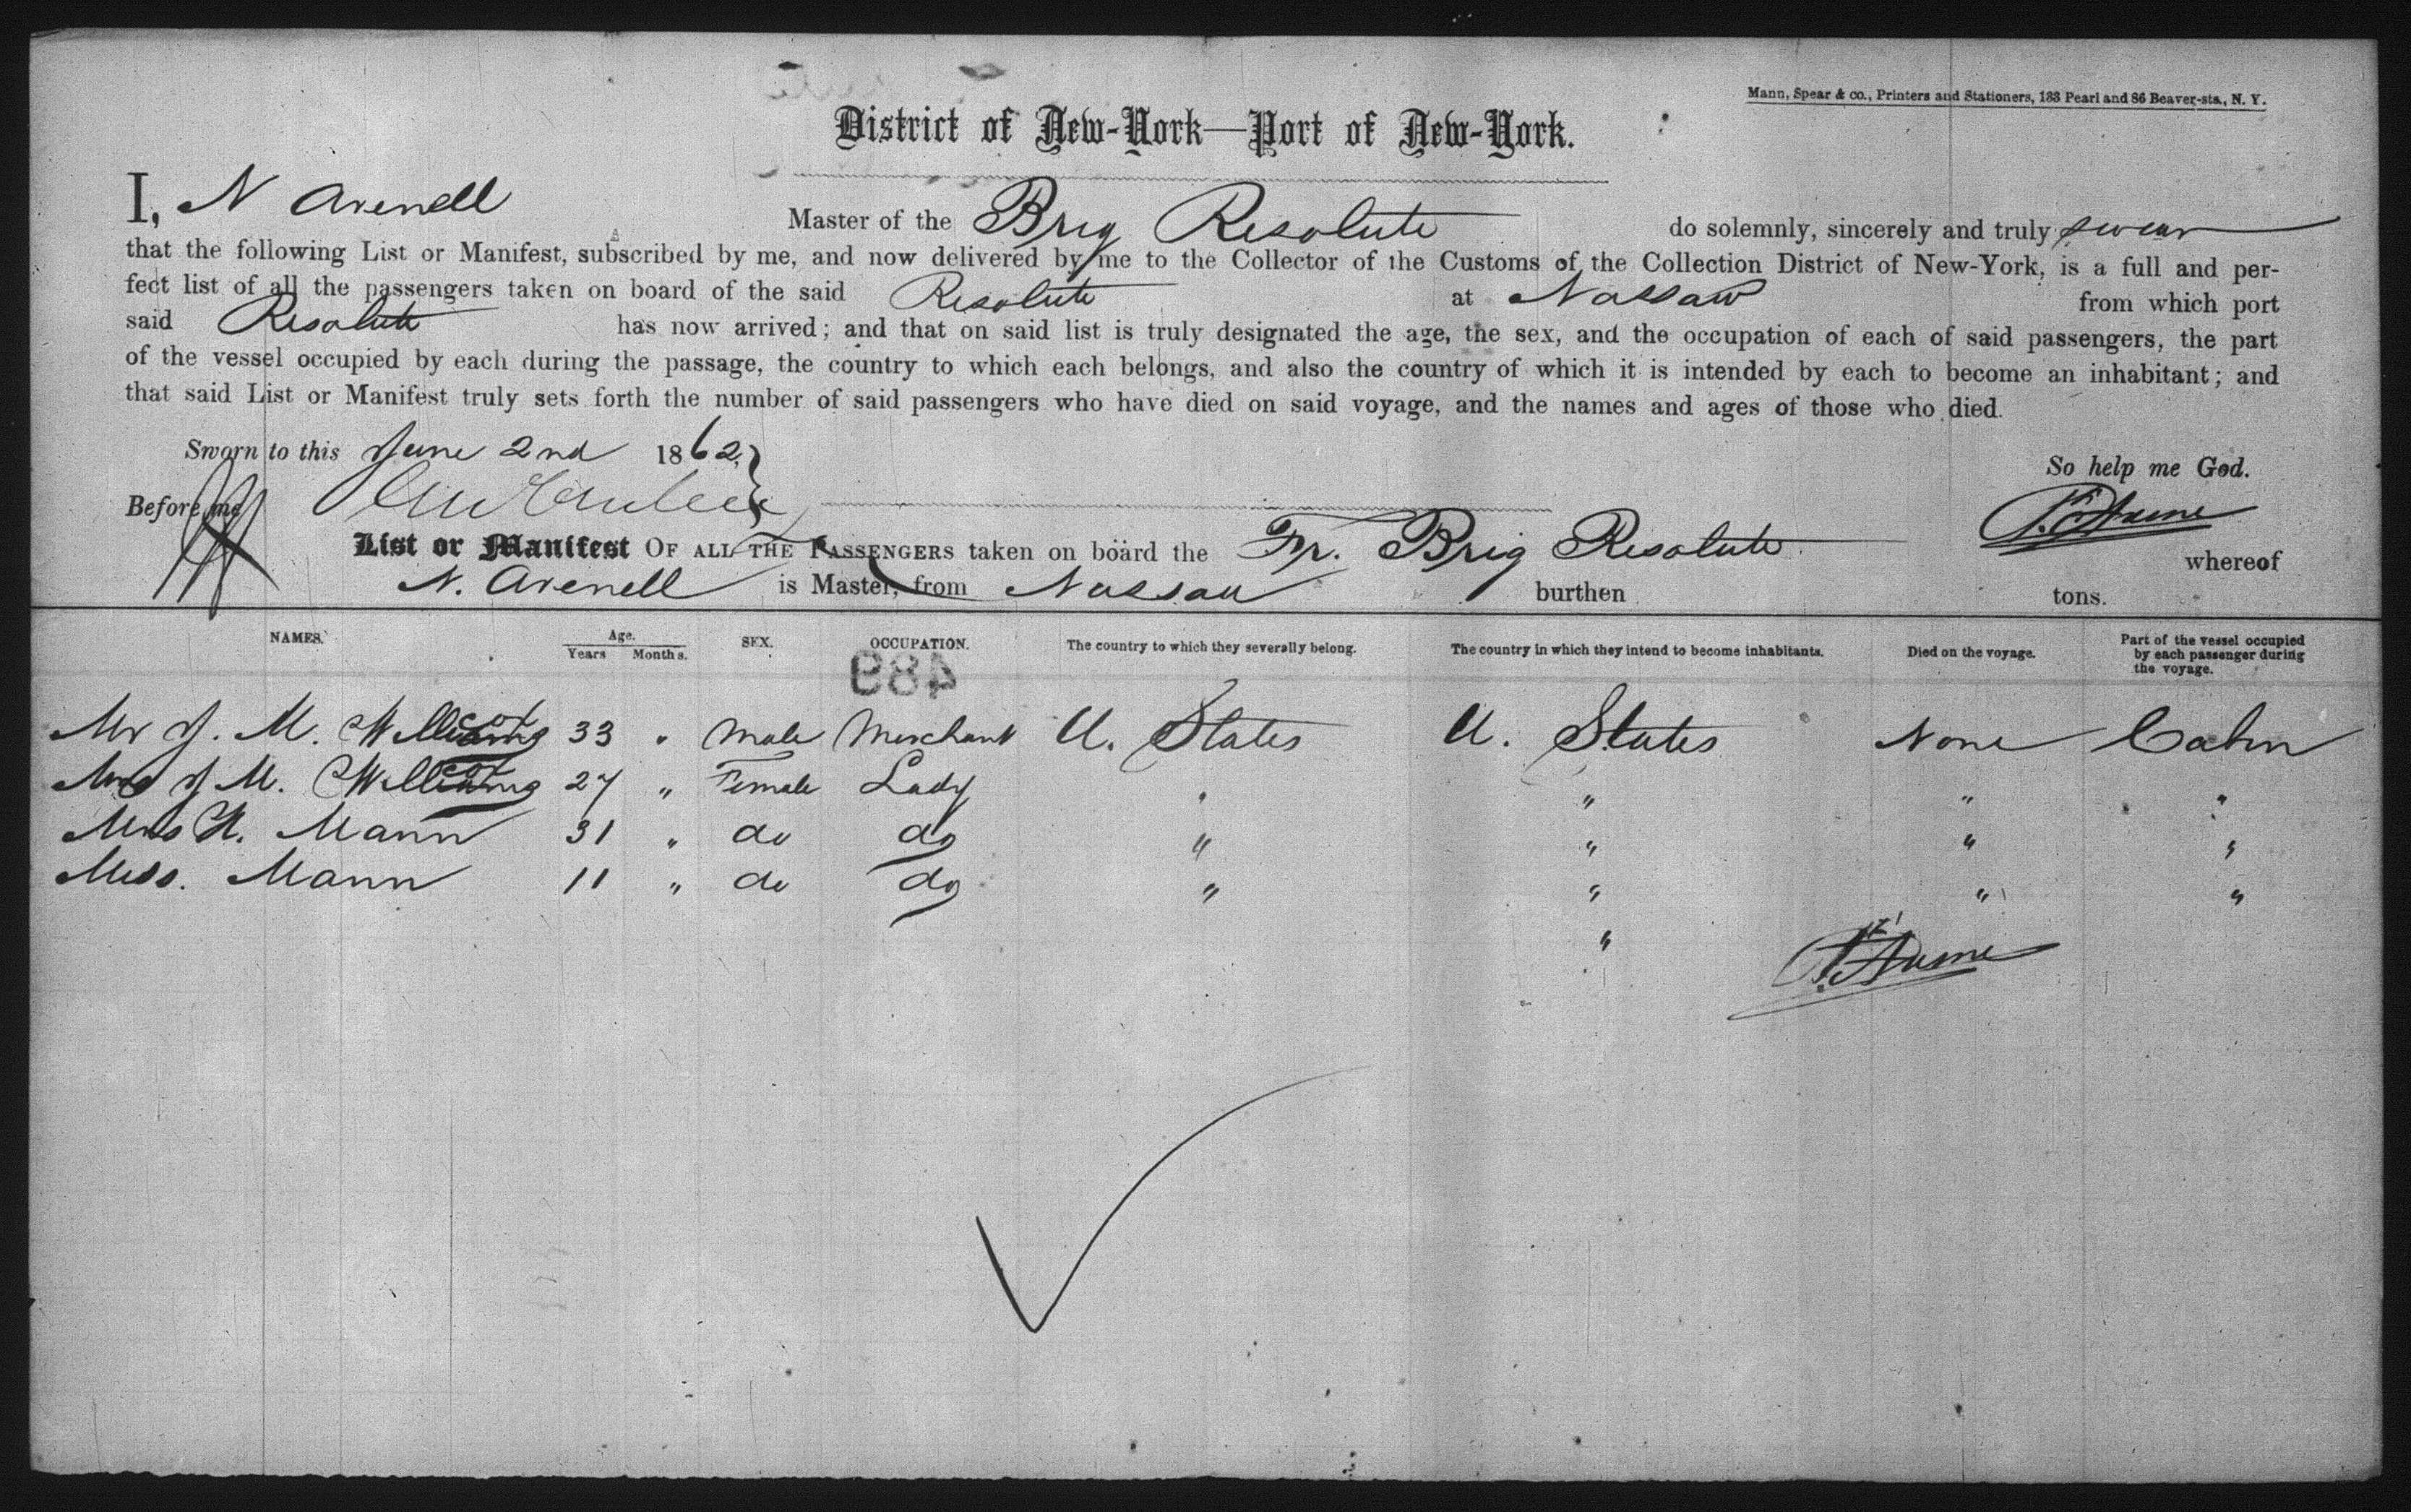 Mann, Spear & co., Printers and Stationers, 133 Pearl and 86 Beaver-sts., N. Y.
District of New-York—Port of New-York.
I, N Avenell Master of the Brig Resolute do solemnly, sincerely and truly swear
that the following List or Manifest, subscribed by me, and now delivered by me to the Collector of the Customs of the Collection District of New-York, is a full and per-
fect list of all the passengers taken on board of the said Resolute at Nassau from which port
said Resolute has now arrived; and that on said list is truly designated the age, the sex, and the occupation of each of said passengers, the part
of the vessel occupied by each during the passage, the country to which each belongs, and also the country of which it is intended by each to become an inhabitant; and
that said List or Manifest truly sets forth the number of said passengers who have died on said voyage, and the names and ages of those who died.
Sworn to this June 2nd 1862
So help me God.
Before me
List or Manifest OF ALL THE PASSENGERS taken on board the Fr. Brig Resolute whereof
N. Avenell is Master, from Nassau burthen tons.
NAMES. Age. Years Months. SEX. OCCUPATION. The country to which they severally belong. The country in which they intend to become inhabitants. Died on the voyage. Part of the vessel occupied by each passenger during the voyage.
489
Mr J. M. Willicox 33 " Male Merchant U. States U. States None Cabin
Mrs J M. Willicox 27 " Female Lady " " " "
Mrs H. Mann 31 " do do " " " "
Miss. Mann 11 " do do " " " "
"